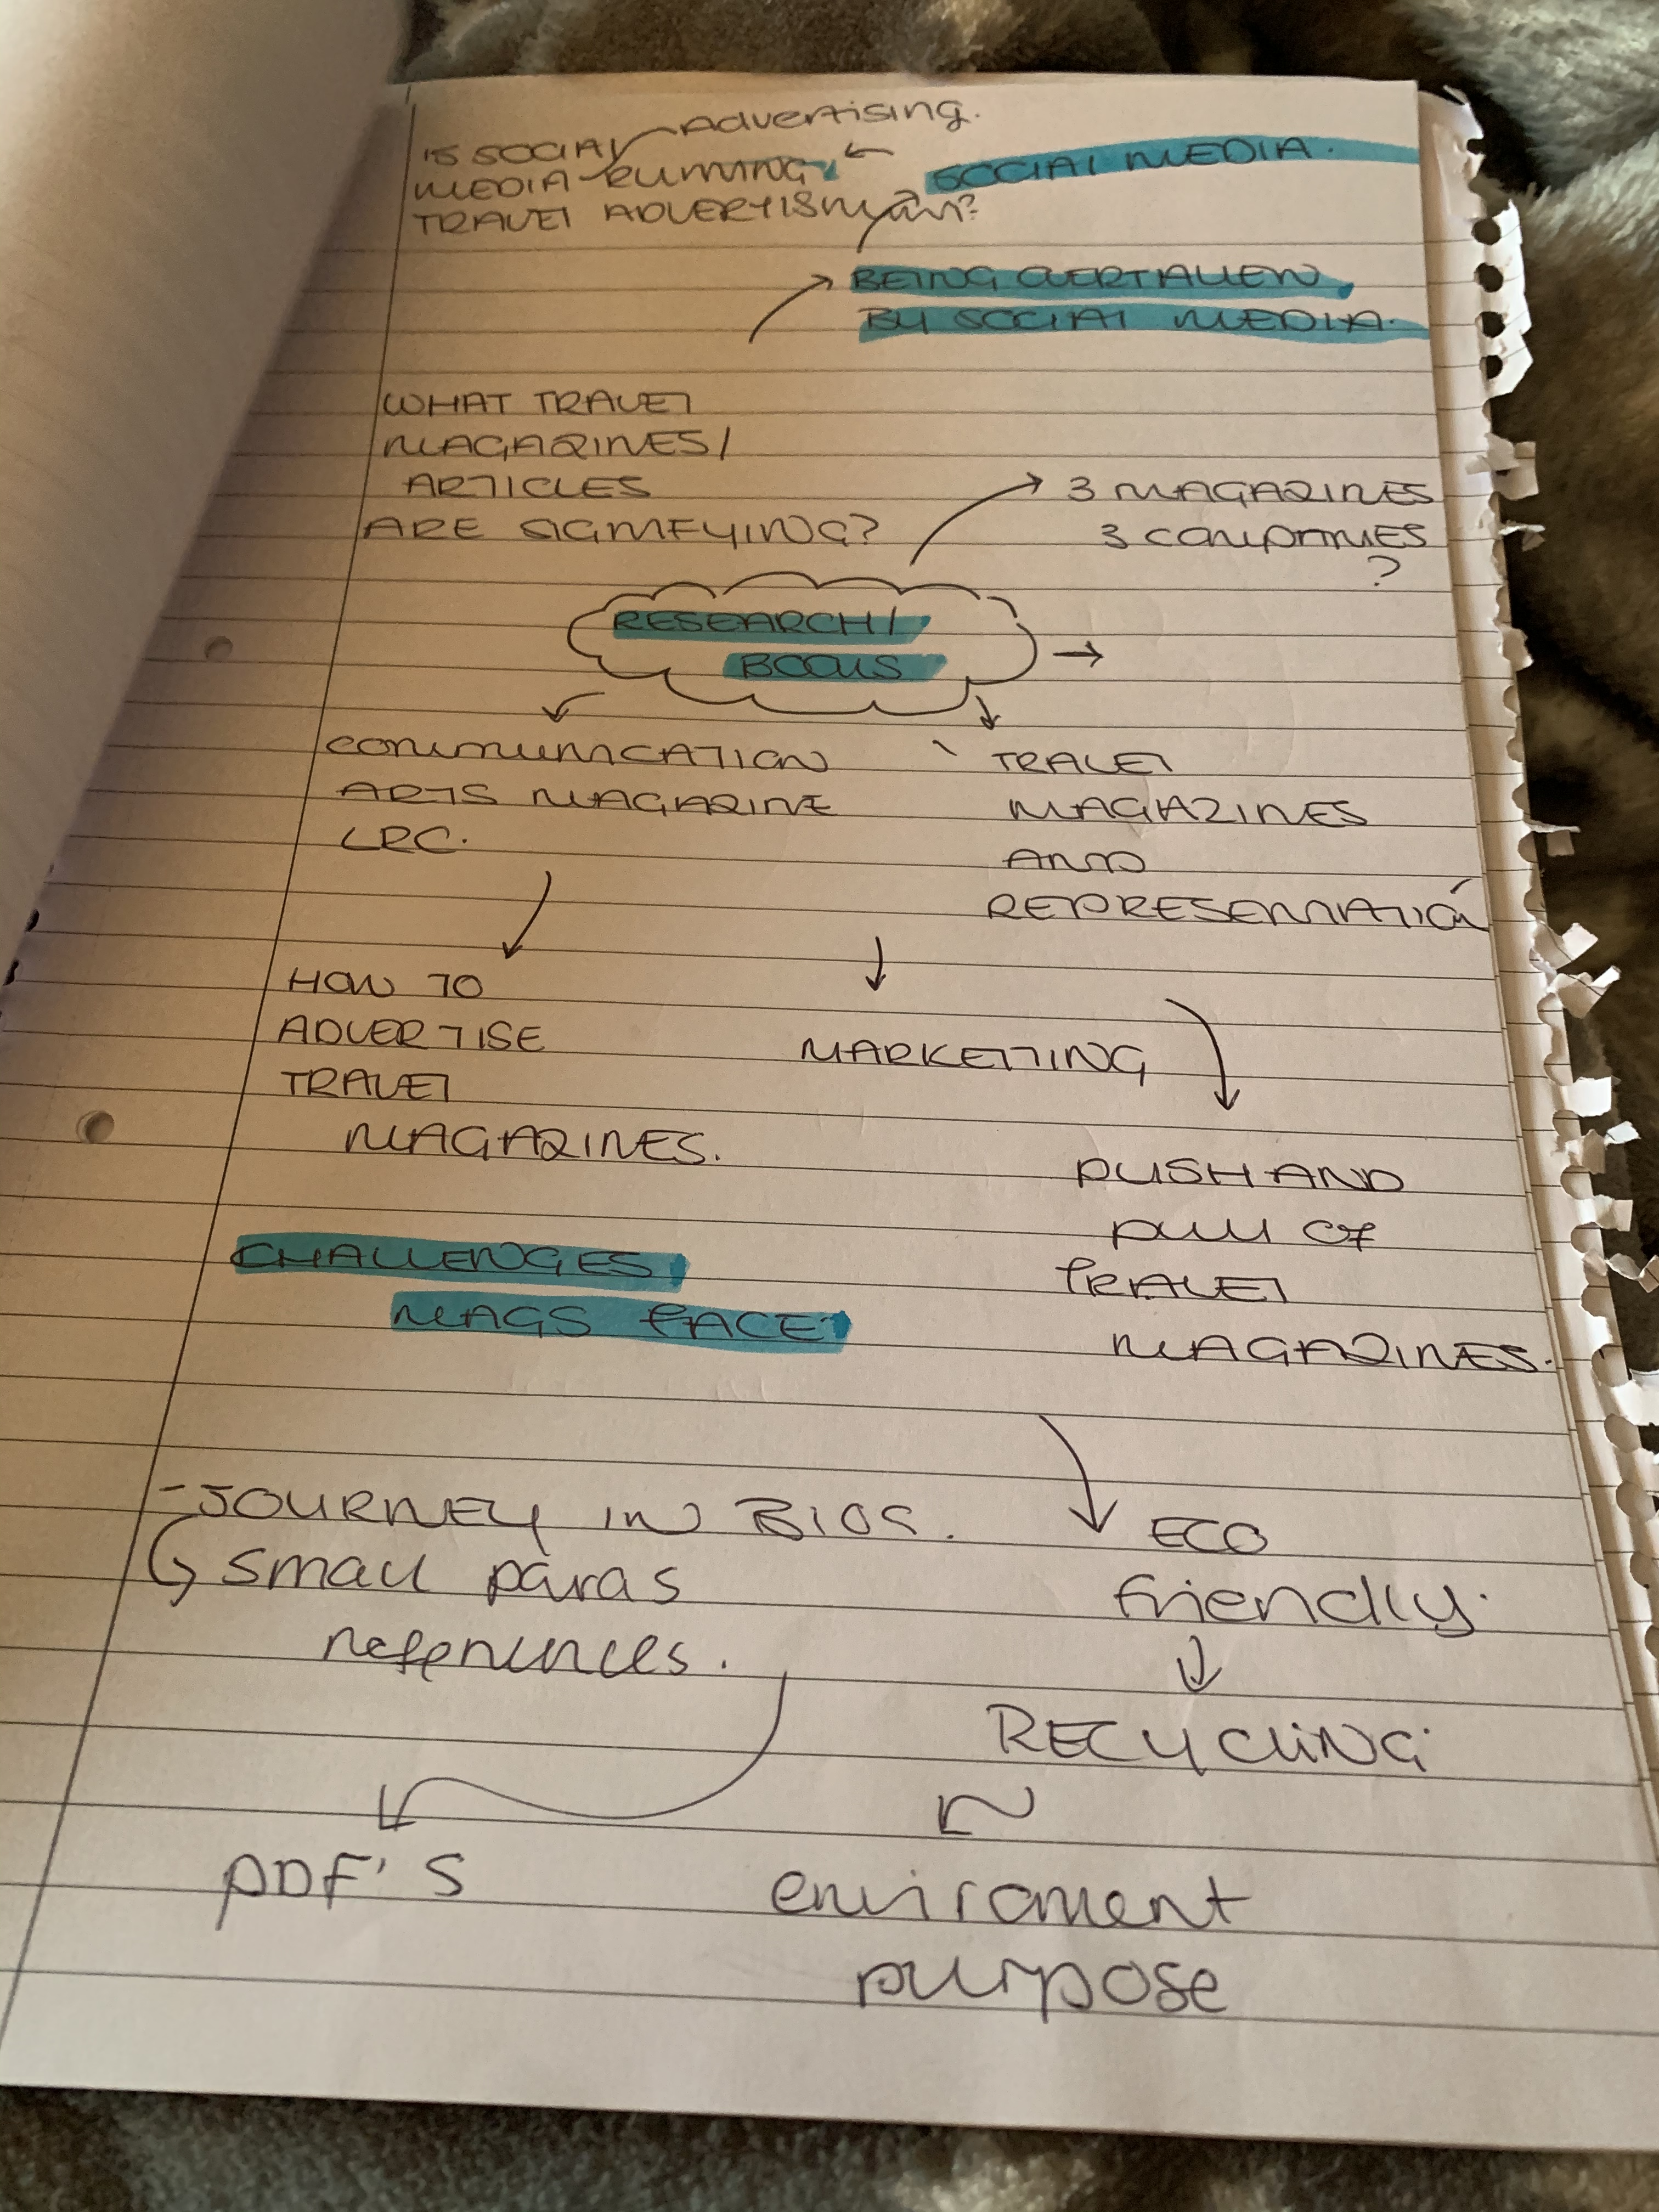 Advertising.
IS SOCIAL
MEDIA RUINING
TRAVEL
SOCIAL MEDIA.
BEING OVERTAKEN
BY SOCIAL MEDIA.
WHAT TRAVEL
MAGAZINES/
ARTICLES
ARE SIGNIFYING?
3 MAGAZINES
3 COMPANIES
?
RESEARCH/
BOOKS
COMMUNICATION
ARTS MAGAZINE
LRC.
TRAVEL
MAGAZINES
AND
REPRESENTATION
HOW TO
ADVERTISE
TRAVEL
MAGAZINES.
MARKETTING
PUSH AND
PULL OF
TRAVEL
MAGAZINES.
CHALLENGES
MAGS FACE
- JOURNEY IN
small paras
references.
ECO
friendly.
RECYCLING
PDF'S
enviroment
purpose